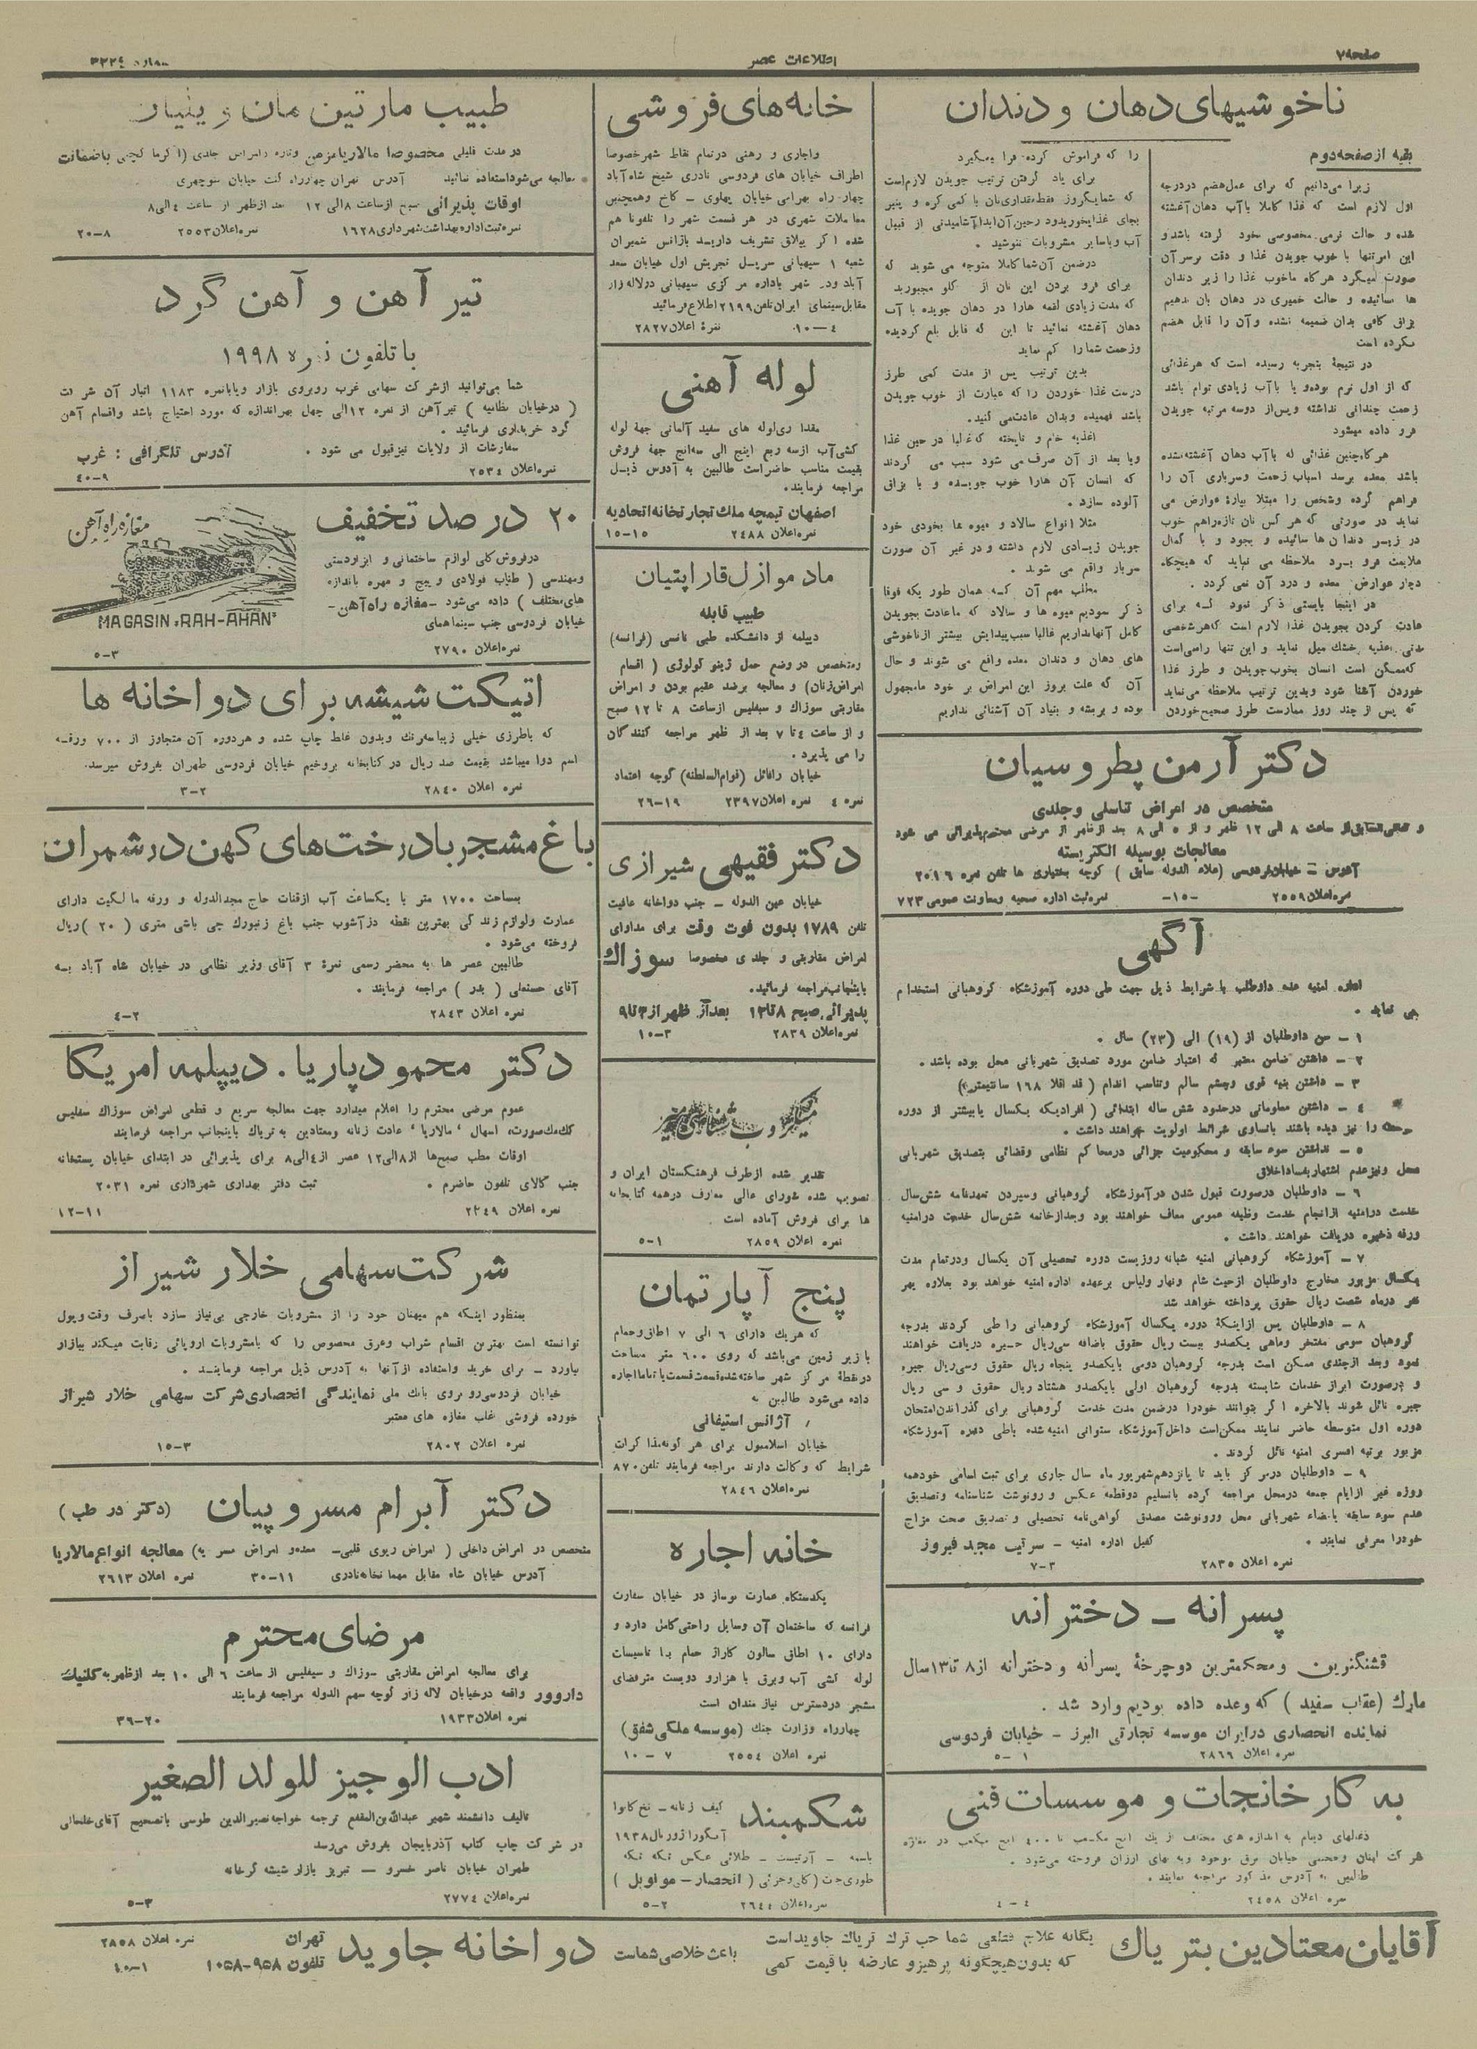 صفحه ۷
اطلاعات عصر
شماره ۳۳۳٤
ناخوشیهای دهان و دندان
بقیه از صفحه دوم
زیرا می‌دانیم که برای عمل هضم در درجه
اول لازم است که غذا کاملا با آب دهان آغشته
شده و حالت نرمی مخصوصی بخود گرفته باشد و
این امر تنها با خوب جویدن غذا و دقت بر سر آن
صورت میگیرد هر گاه ما خوب غذا را زیر دندان
ها سائیده و حالت خمیری در دهان بآن ندهیم
بزاق کافی بدان ضمیمه نشده و آن را قابل هضم
نکرده است
در نتیجهٔ بتجربه رسیده است که هر غذائی
که از اول نرم بوده و یا با آب زیادی توام باشد
زحمت چندانی نداشته و پس از دو سه مرتبه جویدن
فرو داده میشود
هر گاه چنین غذائی که با آب دهان آغشته نشده
باشد بمعده برسد اسباب زحمت و سرباری آن را
فراهم کرده و شخص را مبتلا بپارهٔ عوارض می
نماید در صورتی که هر کس نان تازه راهم خوب
در زیر دندان ها سائیده و بجود و با کمال
ملایمت فرو برد ملاحظه می نماید که هیچگاه
دچار عوارض معده و درد آن نمی گردد .
در اینجا بایستی ذکر نمود که برای
عادت کردن بجویدن غذا لازم است که هر شخصی
مدتی اغذیه خشک میل نماید و این تنها راهی است
که ممکن است انسان بخوب جویدن و طرز غذا
خوردن آشنا شود و بدین ترتیب ملاحظه می‌نماید
که پس از چند روز ممارست طرز صحیح خوردن
را که فراموش کرده فرا میگیرد
برای یاد گرفتن ترتیب جویدن لازم است
که شما یکروز فقط مقداری نان با کمی کره و پنیر
بجای غذا بخورید و در حین آن ابدا آشامیدنی از قبیل
آب و یا سایر مشروبات ننوشید .
در ضمن آن شما کاملا متوجه می شوید که
برای فرو بردن این نان از گلو مجبورید
که مدت زیادی لقمه هارا در دهان جویده با آب
دهان آغشته نمائید تا این که قابل بلع گردیده
و زحمت شما را کم نماید
بدین ترتیب پس از مدت کمی طرز
درست غذا خوردن را که عبارت از خوب جویدن
باشد فهمیده و بدان عادت می کنید.
اغذیه خام و نا پخته که غالبا در حین غذا
و یا بعد از آن صرف می شود سبب می گردند
که انسان آن هارا خوب جویده و با بزاق
آلوده سازد .
مثلا انواع سالاد و میوه ها بخودی خود
جویدن زیادی لازم داشته و در غیر آن صورت
سربار واقع می شوند .
مطلب مهم آن که همان طور یکه فوقا
ذکر نمودیم میوه ها و سالاد که ما عادت بجویدن
کامل آنها نداریم غالبا سبب پیدایش بیشتر از ناخوشی
های دهان و دندان معده واقع می شوند و حال
آن که علت بروز این امراض بر خود ما مجهول
بوده و بریشه و بنیاد آن آشنائی نداریم
دکتر آرمن پطروسیان
متخصص در امراض تناسلی و جلدی
و کمافی السابق از ساعت ۸ الی ۱۲ ظهر و از ۵ الی ۸ بعد از ظهر از مرضی محترم پذیرائی می شود
معالجات بوسیله الکتریسته
آدرس – خیابان فردوسی (علاء الدوله سابق) کوچه بختیاری ها تلفن نمره ۲۰۱٦
نمره اعلان ۲۵۵۹ -۱۵- نمره ثبت اداره صحیه و معاونت عمومی ۷۲۳
آگهی
اداره امنیه عده داوطلب با شرایط ذیل جهت طی دوره آموزشگاه گروهبانی استخدام
می نماید .
۱ – سن داوطلبان از (۱۹) الی (۲۳) سال .
۲ – داشتن ضامن معتبر که اعتبار ضامن مورد تصدیق شهربانی محل بوده باشد .
۳ – داشتن بنیه قوی و چشم سالم و تناسب اندام ( قد اقلا ۱٦۸ سانتیمتر)
٤ – داشتن معلوماتی در حدود شش ساله ابتدائی ( افرادیکه یکسال یا بیشتر از دوره
را نیز دیده باشند با تساوی شرائط اولویت خواهند داشت .
۵ – نداشتن سوء سابقه و محکومیت جزائی در محاکم نظامی و قضائی بتصدیق شهربانی
محل و نیز عدم اشتهار بفساد اخلاق
٦ – داوطلبان در صورت قبول شدن در آموزشگاه گروهبانی و سپردن تعهدنامه شش سال
خدمت در امنیه از انجام خدمت وظیفه عمومی معاف خواهند بود و بعد از خاتمه شش سال خدمت در امنیه
ورقه ذخیره دریافت خواهند داشت .
۷ – آموزشگاه گروهبانی امنیه شبانه روزیست دوره تحصیلی آن یکسال و در تمام مدت
یکسال مزبور مخارج داوطلبان از حیث شام و نهار و لباس بر عهده اداره امنیه خواهد بود بعلاوه بهر
نفر در ماه شصت ریال حقوق پرداخته خواهد شد
۸ – داوطلبان پس از اینکهٔ دوره یکساله آموزشگاه گروهبانی را طی کردند بدرجه
گروهبان سومی مفتخر و ماهی یکصدو بیست ریال حقوق باضافه سی ریال جیره دریافت خواهند
نمود و بعد از چندی ممکن است بدرجه گروهبان دومی با یکصدو پنجاه ریال حقوق و سی ریال جیره
و در صورت ابراز خدمات شایسته بدرجه گروهبان اولی با یکصدو هشتاد ریال حقوق و سی ریال
جیره نائل شوند بالاخره اگر بتوانند خود را در ضمن مدت خدمت گروهبانی برای گذراندن امتحان
دوره اول متوسطه حاضر نمایند ممکن است داخل آموزشگاه ستوانی امنیه شده با طی دوره آموزشگاه
مزبور برتبه افسری امنیه نائل گردند .
۹ – داوطلبان در مرکز باید تا پانزدهم شهریور ماه سال جاری برای ثبت اسامی خود همه
روزه غیر از ایام جمعه در محل مراجعه کرده با تسلیم دو قطعه عکس و رونوشت شناسنامه و تصدیق
عدم سوء سابقه بامضاء شهربانی محل و رونوشت مصدق گواهی نامه تحصیلی و تصدیق صحت مزاج
خود را معرفی نمایند . کفیل اداره امنیه – سرتیپ مجید فیروز
نمره اعلان ۲۸۳۵ ۳-۷
پسرانه – دخترانه
قشنگترین و محکمترین دوچرخهٔ پسرانه و دخترانه از ۸ تا ۱۳ سال
مارک (عقاب سفید) که وعده داده بودیم وارد شد .
نماینده انحصاری در ایران موسسه تجارتی البرز – خیابان فردوسی
نمره اعلان ۲۸٦٦ ۱-۵
به کارخانجات و موسسات فنی
شرکت
خیابان برق موجود و به بهای ارزان فروخته می‌شود .
طالبین به آدرس مذکور مراجعه نمایند .
نمره اعلان ۲٤۵۸ ٤-٤
خانه های فروشی
و اجاری و رهنی در تمام نقاط شهر خصوصا
اطراف خیابان های فردوسی نادری شیخ شاه آباد
چهار راه بهرامی خیابان پهلوی – کاخ و همچنین
معاملات شهری در هر قسمت شهر را تلفونا هم
شده اگر ییلاق تشریف دارید با آژانس شمیران
شعبه ۱ سیهبانی سر پل تجریش اول خیابان سعد
آباد و در شهر باداره مرکزی سیهبانی در لاله زار
مقابل سینمای ایران تلفن ۲۱۹۹ اطلاع فرمائید
٤-۱۰ نمرهٔ اعلان ۲۸۲۷
لوله آهنی
مقداری لوله های سفید آلمانی جهة لوله
کشی آب از سه ربع اینچ الی سه انچ جهة فروش
بقیمت مناسب حاضر است طالبین به آدرس ذیل
مراجعه فرمایند.
اصفهان تیمچه ملک تجارتخانه اتحادیه
نمره اعلان ۲٤۸۸ ۱۵-۱۵
مادموازل قاراپتیان
طبیب قابله
دیپلمه از دانشکده طبی نانسی (فرانسه)
و متخصص در وضع حمل ژینو کولوژی ( اقسام
امراض زنان) و معالجه بر ضد عقیم بودن و امراض
مقاربتی سوزاک و سیفلیس از ساعت ۸ تا ۱۲ صبح
و از ساعت ٤ تا ۷ بعد از ظهر مراجعه کنندگان
را می پذیرد .
خیابان رافائل (قوام السلطنه) کوچه اعتماد
نمره ٤ نمره اعلان ۲۳۹۷ ۱۹-۲٦
دکتر فقیهی شیرازی
خیابان عین الدوله – جنب دواخانه عافیت
تلفن ۱۷۸۹ بدون فوت وقت برای مداوای
امراض مقاربتی و جلدی مخصوصا سوزاک
باینجانب مراجعه فرمائید.
پذیرائی صبح ۸ تا ۱۲ بعد از ظهر از ۳ تا ۹
نمره اعلان ۲۸۳۹ ۳-۱۰
میکروب شناسی
تقدیر شده از طرف فرهنگستان ایران و
تصویب شده شورای عالی معارف در همه کتابخانه
ها برای فروش آماده است .
نمره اعلان ۲۸۵۹ ۱-۵
پنج آپارتمان
که هر یک دارای ٦ الی ۷ اطاق و حمام
با زیر زمین می‌باشد که روی ٦۰۰ متر مساحت
در نقطهٔ مرکز شهر ساخته شده قسمت قسمت یا تماما اجاره
داده می‌شود طالبین به
آژانس استیفانی
خیابان اسلامبول برای هر گونه مذاکرات
شرایط که وکالت دارند مراجعه فرمایند تلفن ۸۷۰
نمره اعلان ۲۸٤٦
خانه اجاره
یکدستگاه عمارت نو ساز در خیابان سفارت
فرانسه که ساختمان آن وسایل راحتی کامل دارد و
دارای ۱۰ اطاق سالون کاراژ حمام با تاسیسات
لوله کشی آب و برق با هزار و دویست متر فضای
مشجر در دسترس نیاز مندان است
چهار راه وزارت جنگ (موسسه ملکی شفق)
نمره اعلان ۲۵۵٤ ۷-۱۰
شکمبند
کیف زنانه – نخ کانوا
آسگورا ژورنال ۱۹۳۸
– آرتیست – طلائی عکس تکه تکه
(کلی و جزئی) (انحصار – مونوبل)
۲-۵
طبیب مارتین مان ویلیان
در مدت قلیلی مخصوصا مالاریا مزمن و تازه و امراض جلدی (اگزما کچلی) با ضمانت
معالجه می شود استفاده نمائید آدرس طهران چهار راه کنت خیابان منوچهری
اوقات پذیرائی صبح از ساعت ۸ الی ۱۲ بعد از ظهر از ساعت ٤ الی ۸
نمره ثبت اداره بهداشت شهرداری ۱٦۲۸ نمره اعلان ۲۵۵۳ ۸-۲۰
تیر آهن و آهن گرد
با تلفون نمره ۱۹۹۸
شما می‌توانید از شرکت سهامی غرب روبروی بازار و یا با نمره ۱۱۸۳ انبار آن شرکت
( در خیابان نظامیه ) تیر آهن از نمره ۱۲ الی چهل بهر اندازه که مورد احتیاج باشد و اقسام آهن
گرد خریداری فرمائید .
سفارشات از ولایات نیز قبول می شود . آدرس تلگرافی : غرب
نمره اعلان ۲۵۳٤ ۹-٤۰
۲۰ در صد تخفیف
در فروش کلی لوازم ساختمانی و ابزار دستی
و مهندسی ( طناب فولادی و پیچ و مهره باندازه
های مختلف ) داده می‌شود – مغازه راه آهن –
خیابان فردوسی جنب سینما همای
نمره اعلان ۲۷۹۰ ۳-۵
مغازه راه آهن
MAGASIN "RAH-AHAN"
اتیکت شیشه برای دواخانه ها
که باطرزی خیلی زیبا سه رنگ و بدون غلط چاپ شده و هر دوره آن متجاوز از ۷۰۰ ورقه
اسم دوا میباشد بقیمت صد ریال در کتابخانه بروخیم خیابان فردوسی طهران بفروش میرسد.
نمره اعلان ۲۸٤۰ ۲-۳
باغ مشجر با درخت‌های کهن در شمران
بمساحت ۱۷۰۰ متر با یکساعت آب از قنات حاج مجدالدوله و ورقه مالکیت دارای
عمارت و لوازم زندگی بهترین نقطه دزآشوب جنب باغ زنبورک چی باشی متری ( ۲۰ ) ریال
فروخته می‌شود .
طالبین عصر ها به محضر رسمی نمرهٔ ۳ آقای وزیر نظامی در خیابان شاه آباد بسه
آقای حسنعلی ( بدر ) مراجعه فرمایند .
نمره اعلان ۲۸٤۳ ۲-٤
دکتر محمود پاریا . دیپلمه امریکا
عموم مرضی محترم را اعلام میدارد جهت معالجه سریع و قطعی امراض سوزاک سفلیس
کک مک صورت، اسهال ، مالاریا ، عادت زنانه و معتادین به تریاک باینجانب مراجعه فرمایند
اوقات مطب صبح‌ها از ۸ الی ۱۲ عصر از ٤ الی ۸ برای پذیرائی در ابتدای خیابان پستخانه
جنب کالای تلفون حاضرم . ثبت دفتر بهداری شهرداری نمره ۲۰۳۱
نمره اعلان ۲۳٤۹ ۱۱-۱۲
شرکت سهامی خلار شیراز
بمنظور اینکه هم میهنان خود را از مشروبات خارجی بی‌نیاز سازد باصرف وقت و پول
توانسته است بهترین اقسام شراب و عرق مخصوص را که با مشروبات اروپائی رقابت میکند ببازار
بیاورد – برای خرید و استفاده از آنها به آدرس ذیل مراجعه فرمایند .
خیابان فردوسی روبروی بانک ملی نمایندگی انحصاری شرکت سهامی خلار شیراز
خورده فروشی غالب مغازه های معتبر
نمره اعلان ۲۸۰۲ ۳-۱۵
دکتر آبرام مسروپیان (دکتر در طب)
متخصص در امراض داخلی ( امراض ریوی قلبی- معده و امراض مسریه) معالجه انواع مالاریا
آدرس خیابان شاه مقابل مهمانخانه نادری ۱۱-۳۰ نمره اعلان ۲٦۱۳
مرضای محترم
برای معالجه امراض مقاربتی سوزاک و سیفلیس از ساعت ٦ الی ۱۰ بعد از ظهر به کلنیک
داروور واقعه در خیابان لاله زار کوچه سهم الدوله مراجعه فرمایند
نمره اعلان ۱۹۳۳ ۲۰-۳٦
ادب الوجیز للولد الصغیر
تالیف دانشمند شهیر عبدالله بن المقفع ترجمه خواجه نصیرالدین طوسی باتصحیح آقای خلخالی
در شرکت چاپ کتاب آذربایجان بفروش می‌رسد
طهران خیابان ناصر خسرو – تبریز بازار شیشه گرخانه
نمره اعلان ۲۷۷٤ ۳-۵
آقایان معتادین بتریاک
یگانه علاج قطعی شما حب ترک تریاک جاوید است
که بدون هیچگونه پرهیز و عارضه با قیمت کمی
باعث خلاصی شماست
دواخانه جاوید
تهران
تلفون ۹۵۸-۱۰۵۸
نمره اعلان ۲۸۵۸
۱-٤۰